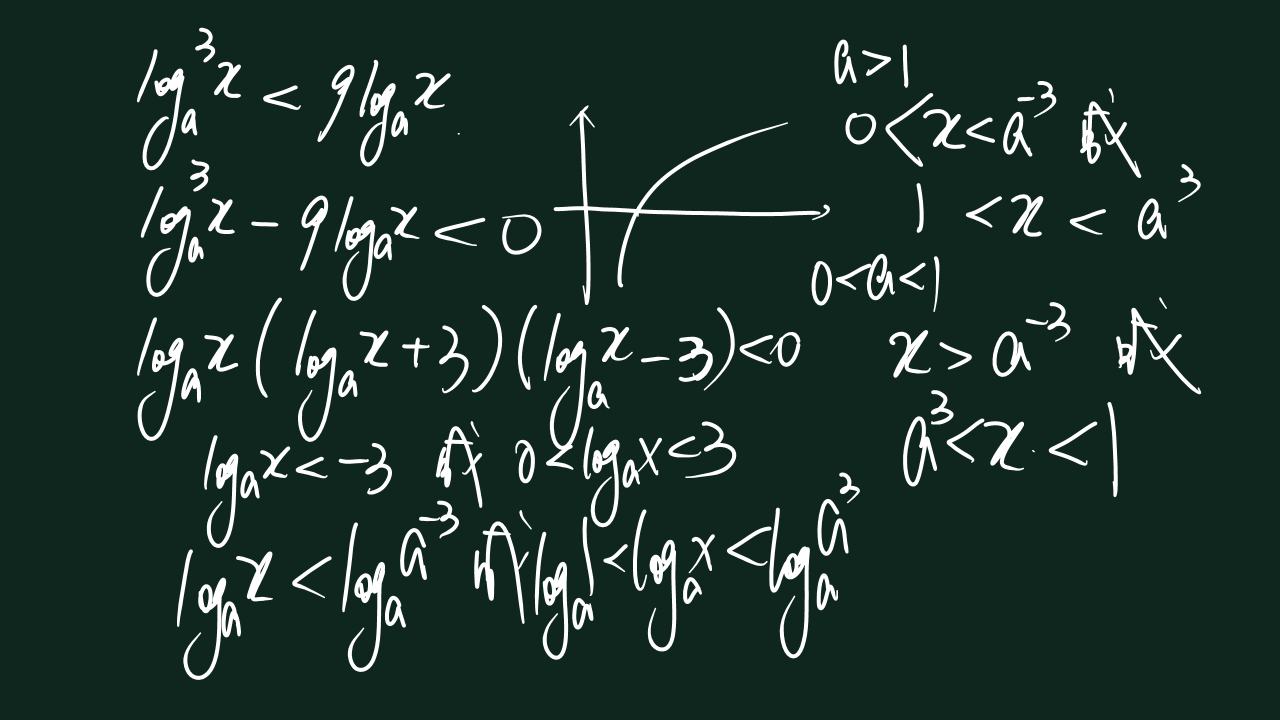 log_a^3 x < 9 log_a x
log_a^3 x - 9 log_a x < 0
log_a x (log_a x + 3)(log_a x - 3) < 0
log_a x < -3 或 0 < log_a x < 3
log_a x < log_a a^{-3} 或 log_a 1 < log_a x < log_a a^3
a > 1
0 < x < a^{-3} 或
1 < x < a^3
0 < a < 1
x > a^{-3} 或
a^3 < x < 1